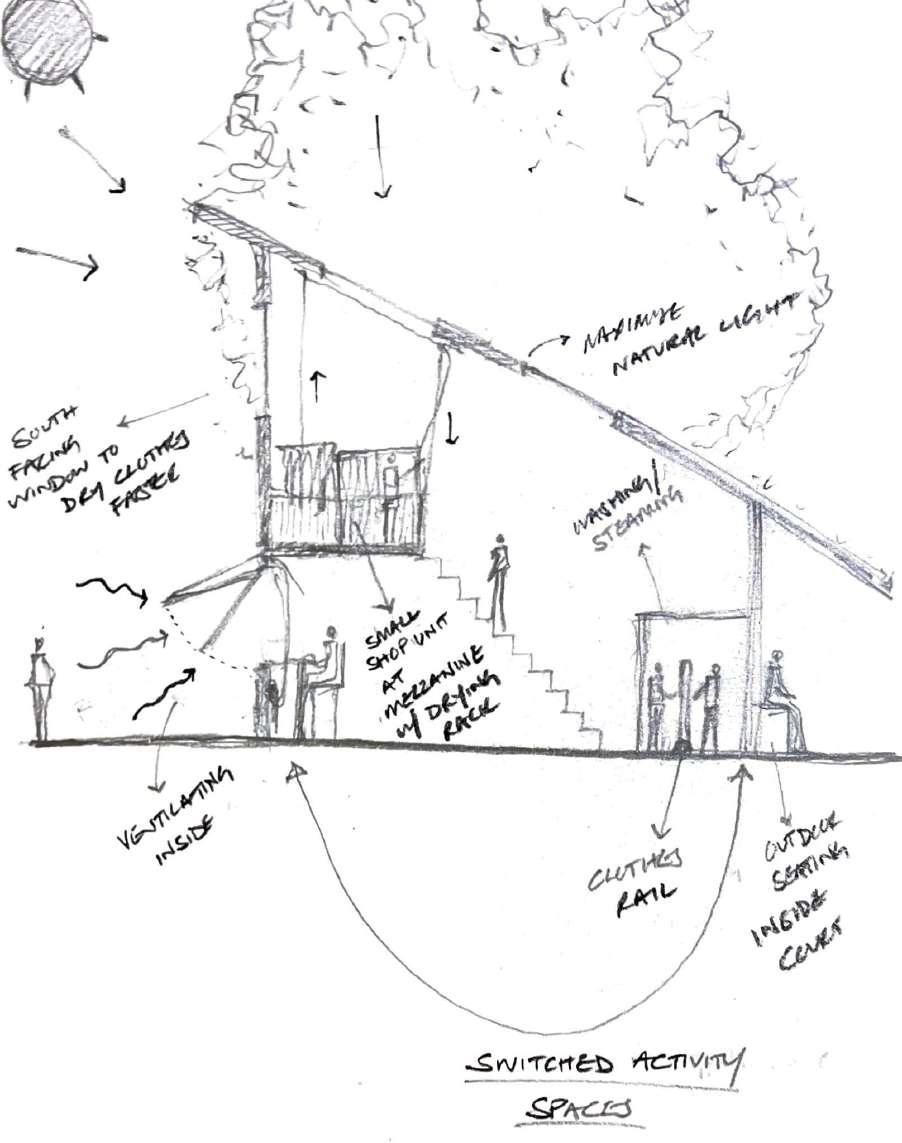 MAXIMIZE
NATURAL LIGHT
SOUTH
FACING
WINDOW TO
DRY CLOTHES
FASTER
WASHING/
STEAMING
SMALL
SHOP UNIT
AT
MEZZANINE
W/ DRYING
RACK
VENTILATING
INSIDE
CLOTHES
RAIL
OUTDOOR
SEATING
INSIDE
COURT
SWITCHED ACTIVITY
SPACES